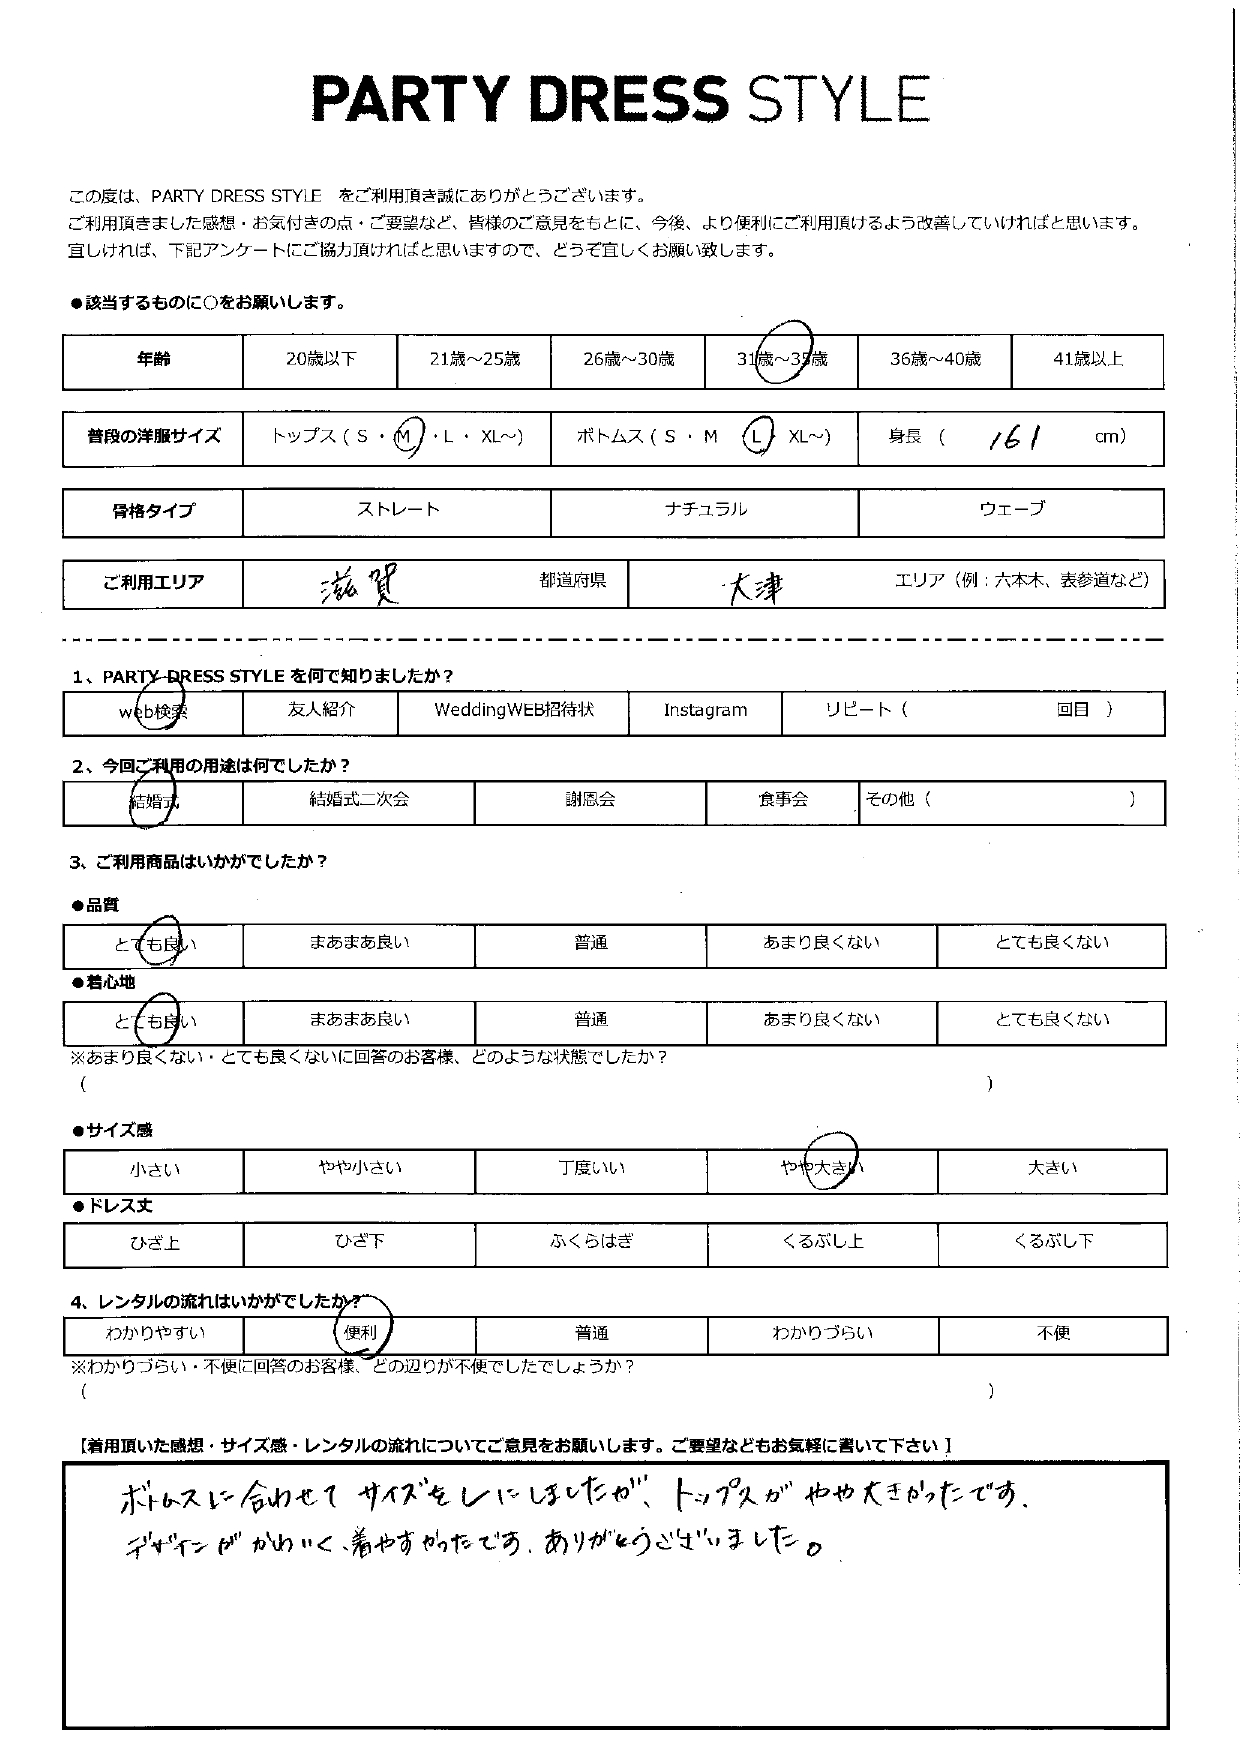 PARTY DRESS STYLE
この度は、PARTY DRESS STYLE　をご利用頂き誠にありがとうございます。
ご利用頂きました感想・お気付きの点・ご要望など、皆様のご意見をもとに、今後、より便利にご利用頂けるよう改善していければと思います。
宜しければ、下記アンケートにご協力頂ければと思いますので、どうぞ宜しくお願い致します。
●該当するものに○をお願いします。
年齢 20歳以下 21歳～25歳 26歳～30歳 31歳～35歳 36歳～40歳 41歳以上
普段の洋服サイズ トップス ( S ・ M ・ L ・ XL～) ボトムス ( S ・ M L XL～) 身長 ( 161 cm)
骨格タイプ ストレート ナチュラル ウェーブ
ご利用エリア 滋賀 都道府県 大津 エリア（例：六本木、表参道など）
1、PARTY DRESS STYLE を何で知りましたか？
web検索 友人紹介 WeddingWEB招待状 Instagram リピート（ 回目 ）
2、今回ご利用の用途は何でしたか？
結婚式 結婚式二次会 謝恩会 食事会 その他（ ）
3、ご利用商品はいかがでしたか？
●品質
とても良い まあまあ良い 普通 あまり良くない とても良くない
●着心地
とても良い まあまあ良い 普通 あまり良くない とても良くない
※あまり良くない・とても良くないに回答のお客様、どのような状態でしたか？
( )
●サイズ感
小さい やや小さい 丁度いい やや大きい 大きい
●ドレス丈
ひざ上 ひざ下 ふくらはぎ くるぶし上 くるぶし下
4、レンタルの流れはいかがでしたか？
わかりやすい 便利 普通 わかりづらい 不便
※わかりづらい・不便に回答のお客様、どの辺りが不便でしたでしょうか？
( )
【着用頂いた感想・サイズ感・レンタルの流れについてご意見をお願いします。ご要望などもお気軽に書いて下さい】
ボトムスに合わせてサイズをLにしましたが、トップスがやや大きかったです.
デザインがかわいく、着やすかったです.ありがとうございました。